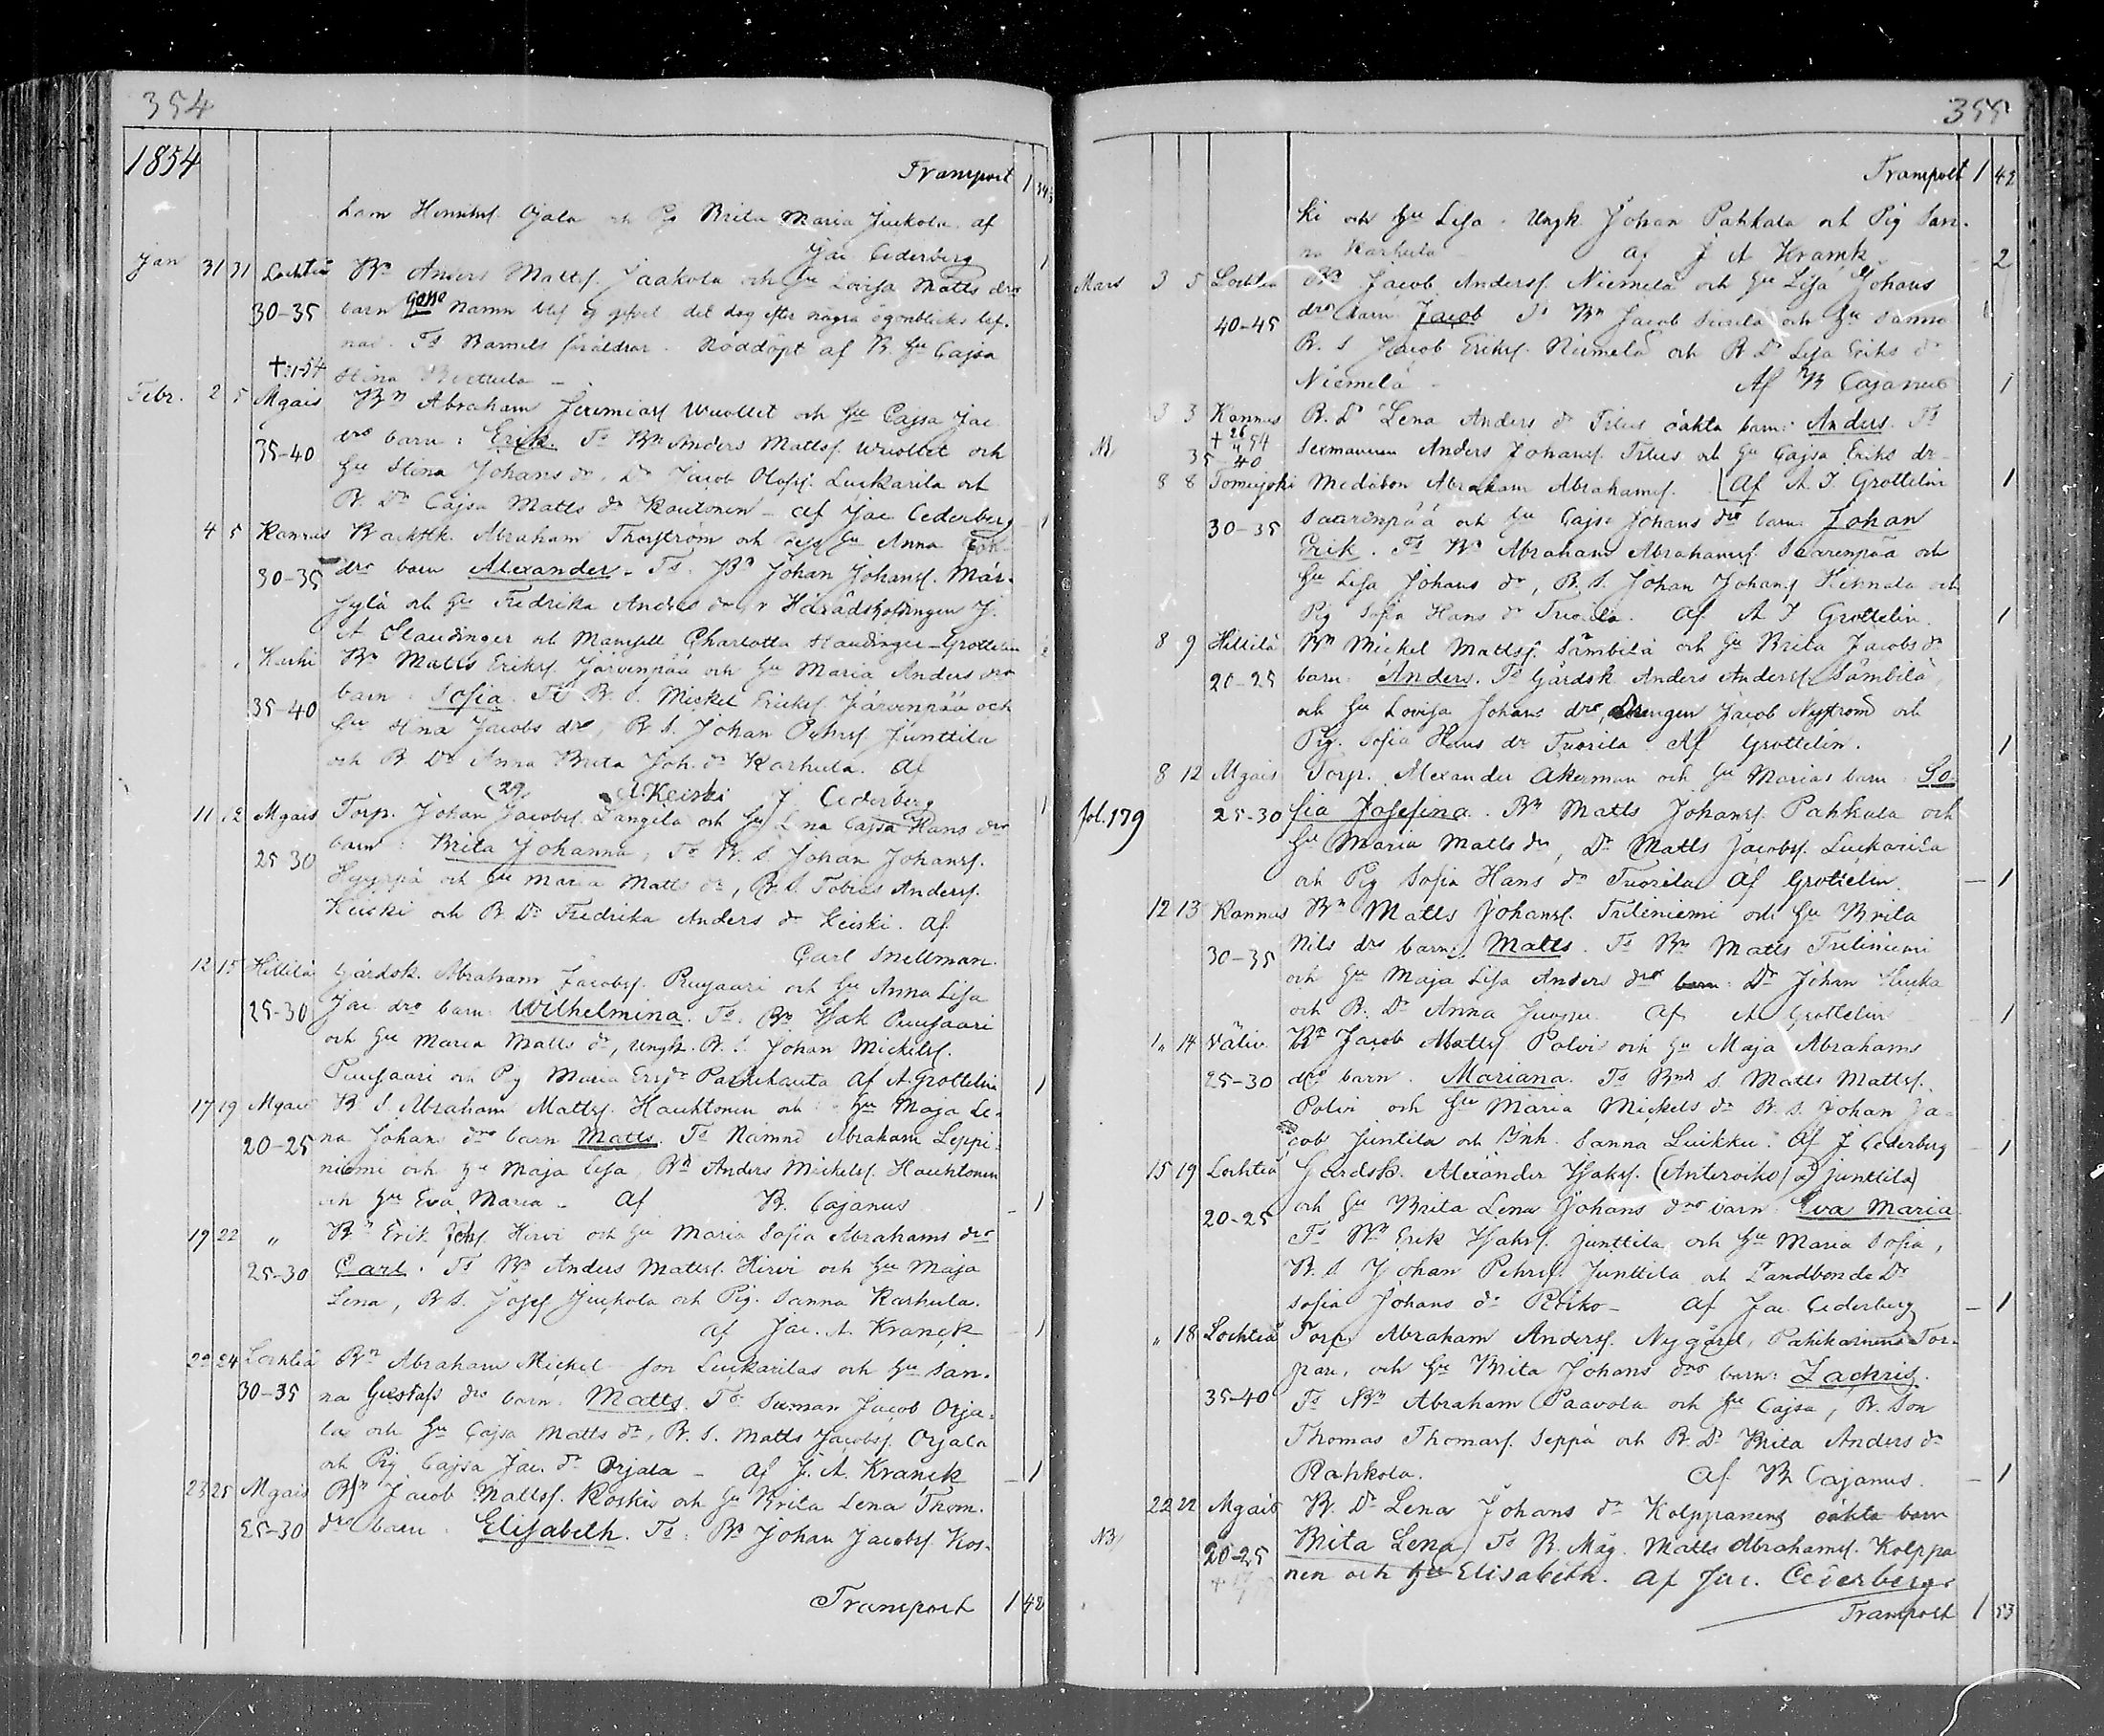 354
1854
Transport 1
ham Henriks. Ojala och Pig Brita Maria Juckola. af
Jac Cederberg 1
Jan 31 31 Lochteå Bn Anders Matts. Jaakola och Hu Lovisa Matts drs
30-35 barn Gosse Namn blef ej gifvet det dog efter några ögonblicks lef-
nad. Ts Barnets föräldrar. Nöddöpt af B. Hu Cajsa
Stina
Febr. 2 5 Mgais Bn Abraham Jeremias. Wuollet och Hu Cajsa Jac
35-40 drs barn: Erik. Ts Bn Anders Mattss. Wuollet och
Hu Stina Johans dr. Dr Jacob Olofss. Luckarila och
B. Dr Cajsa Matts dr Kautonen - af Jac Cederberg 1
4 5 Kannus Abraham Thorström och dess Hu Anna Erik-
30-35 drs barn Alexander. Ts. Bn Johan Johanss. Mär-
sylä och Hu Fredrika Anders dr, Häradshöfdingen J.
A Staudinger och Mamsell Charlotta Staudinger - Grottelin
Karhi Bn Matts Eriks. Järvenpää och Hu Maria Anders drs
35-40 barn: Sofia. Ts B. S. Mickel Ericks. Järvenpää och
Hu Stina Jacobs dr, B. S. Johan Pehrs. Junttila
och B. Dr Anna Brita Joh. dr Karhula. af
(29) Keiski J Cederberg 1
11 12 Mgais Torp. Johan Jacobs. Langila och Hu Lena Cajsa Hans drs
25 30 barn: Brita Johanna, Ts B. S. Johan Johanss.
Hyyppä och Hu Maria Matts dr, B. S. Tobias Anderss.
Keiski och B. Dr Fredrika Anders dr Keiski. af
Carl Snellman.
12 15 Hillilä Gårdsk. Abraham Jacobs. Puujaari och Hu Anna Lisa
25-30 Jac drs barn: Wilhelmina. Ts. Bn Isak Puujaari
och Hu Maria Matts dr, Ungk. B. S. Johan Mickelss.
Puujaari och Pig Maria Ers dr Pa af A. Grottelin 1
17 19 Mgais B. S. Abraham Matts. Hauhtonen och Hu Maja Le-
20-25 na Johans drs barn Matts. Ts Nämnd Abraham Leppi-
niemi och Hu Maja Lisa, Bn Anders Mickelss. Hauhtonen
och Hu Eva Maria - af B. Cajanus - 1
19 22 " Bn Erik Johs. Hirvi och Hu Maria Sofia Abrahams drs
25-30 Carl. Ts Bn Anders Mattss. Hirvi och Hu Maja
Lena, B. S. Josef Juckola och Pig. Sanna Karhula.
af Jac. A. Kranck - 1
22 24 Lochteå Bn Abraham Mickel son Luckarilas och Hu San-
30-35 na Gustafs drs barn: Matts. Ts Sexman Jacob Orja-
la och Hu Cajsa Matts dr, B. S. Matts Jacobs. Orjala
och Pig Cajsa Jac. dr Orjala - af J. A. Kranck - 1
23 25 Mgais Bn Jacob Mattss. Koskis och Hu Brita Lena Thom.
25-30 drs barn: Elisabeth. Ts: Bn Johan Jacobs. Kos-
Transport 1 42
355
Transport 1 42
ki och Hu Lisa. Ungk. Johan Pahkala och Pig San-
na Karhula - af J A Kranck - 2
Mars 3 5 Lochteå Bn Jacob Anderss. Niemelä och Hu Lisa Johans
40-45 drs barn Jacob Ts Bn Jacob och Hu Sanna
B. S Jacob Eriks. Niemelä och B Dr Lisa Eriks dr
Niemelä - Af B Cajanus 1
3 3 Kannus B. Dr Lena Anders dr Tilus oäkta barn: Anders. Ts
NB + 26 54 35 40 Sexmannen Anders Johanss. Tilus och Hu Cajsa Eriks dr -
8 8 Tomujoki Inhysing Abraham Abrahamss. Af A I. Grottelin 1
30-35 Saarenpää och Hu Cajsa Johans drs barn: Johan
Erik. Ts Bn Abraham Abrahamss. Saarenpää och
Hu Lisa Johans dr, B. S. Johan Johans. och
Pig Sofia Hans dr Tuorila. Af A I Grottelin. 1
8 9 Hillilä Bn Mickel Mattss. Sämbilä och Hu Brita Jacobs dr
20-25 barn: Anders. Ts Gårdsk. Anders Anderss. Sämbilä,
och Hu Lovisa Johans drs, Drengen Jacob Nyström och
Pig. Sofia Hans dr Tuorila. Af Grottelin. 1
8 12 Mgais Torp. Alexander Åkerman och Hu Marias barn So-
fol. 179 25-30 fia Josefina. Bn Matts Johanss. Pahkala och
Hu Maria Matts dr, Dr Matts Jacobs. Luckarila
och Pig Sofia Hans dr Tuorila Af Grottelin. - 1
12 13 Kannus Bn Matts Johanss. Tiliniemi och Hu Brita
30-35 Nils drs barn: Matts. Ts Bn Matts Tiliniemi
och Hu Maja Lisa Anders drs barn: Dr Johan
och B. Dr Anna Af A Grottelin - 1
14 Väliv. Bn Jacob Matts. Polvi och Hu Maja Abrahams
25-30 drs barn. Mariana. Ts Bns S. Matts Mattss.
Polvi och Hu Maria Mickels dr B. S. Johan Ja-
cob Juntila och Inh. Sanna Luikku. Af J Cederberg - 1
15 19 Lochteå Gårdsk. Alexander Isaks. (Anteroiko / a) Junttila)
20-25 och Hu Brita Lena Johans drs barn: Eva Maria
Ts Bn Erik Isaks. Junttila och Hu Maria Sofia,
B. S Johan Pehrs. Junttila och Landbonde Dr
Sofia Johans dr Roiko - af Jac Cederberg - 1
" 18 Lochteå Torp. Abraham Anderss. Nygård, Pahikainens Tor-
pare, och Hu Brita Johans drs barn: Zachris.
35-40 Ts Bn Abraham Paavola och Hu Cajsa, B. Son
Thomas Thomass. Seppä och B. Dr Brita Anders dr
Rahkola. af B Cajanus. - 1
22 22 Mgais B. Dr Lena Johans dr Kolppanens oäkta barn
NB 20-25 Brita Lena, Ts B. Måg. Matts Abrahamss. Kolppa
nen och Hu Elisabeth. af Jac. Cederberg.
Transport 1 53